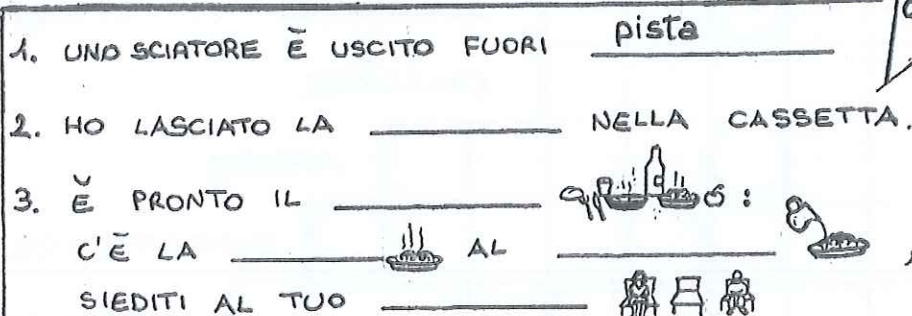 1. UNO SCIATORE È USCITO FUORI pista
2. HO LASCIATO LA __________ NELLA CASSETTA.
3. È PRONTO IL __________ :
C'È LA __________ AL __________
SIEDITI AL TUO __________